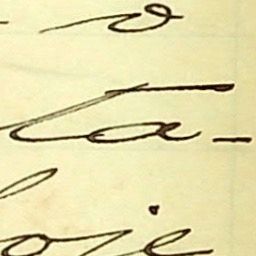 o
ta-
oje